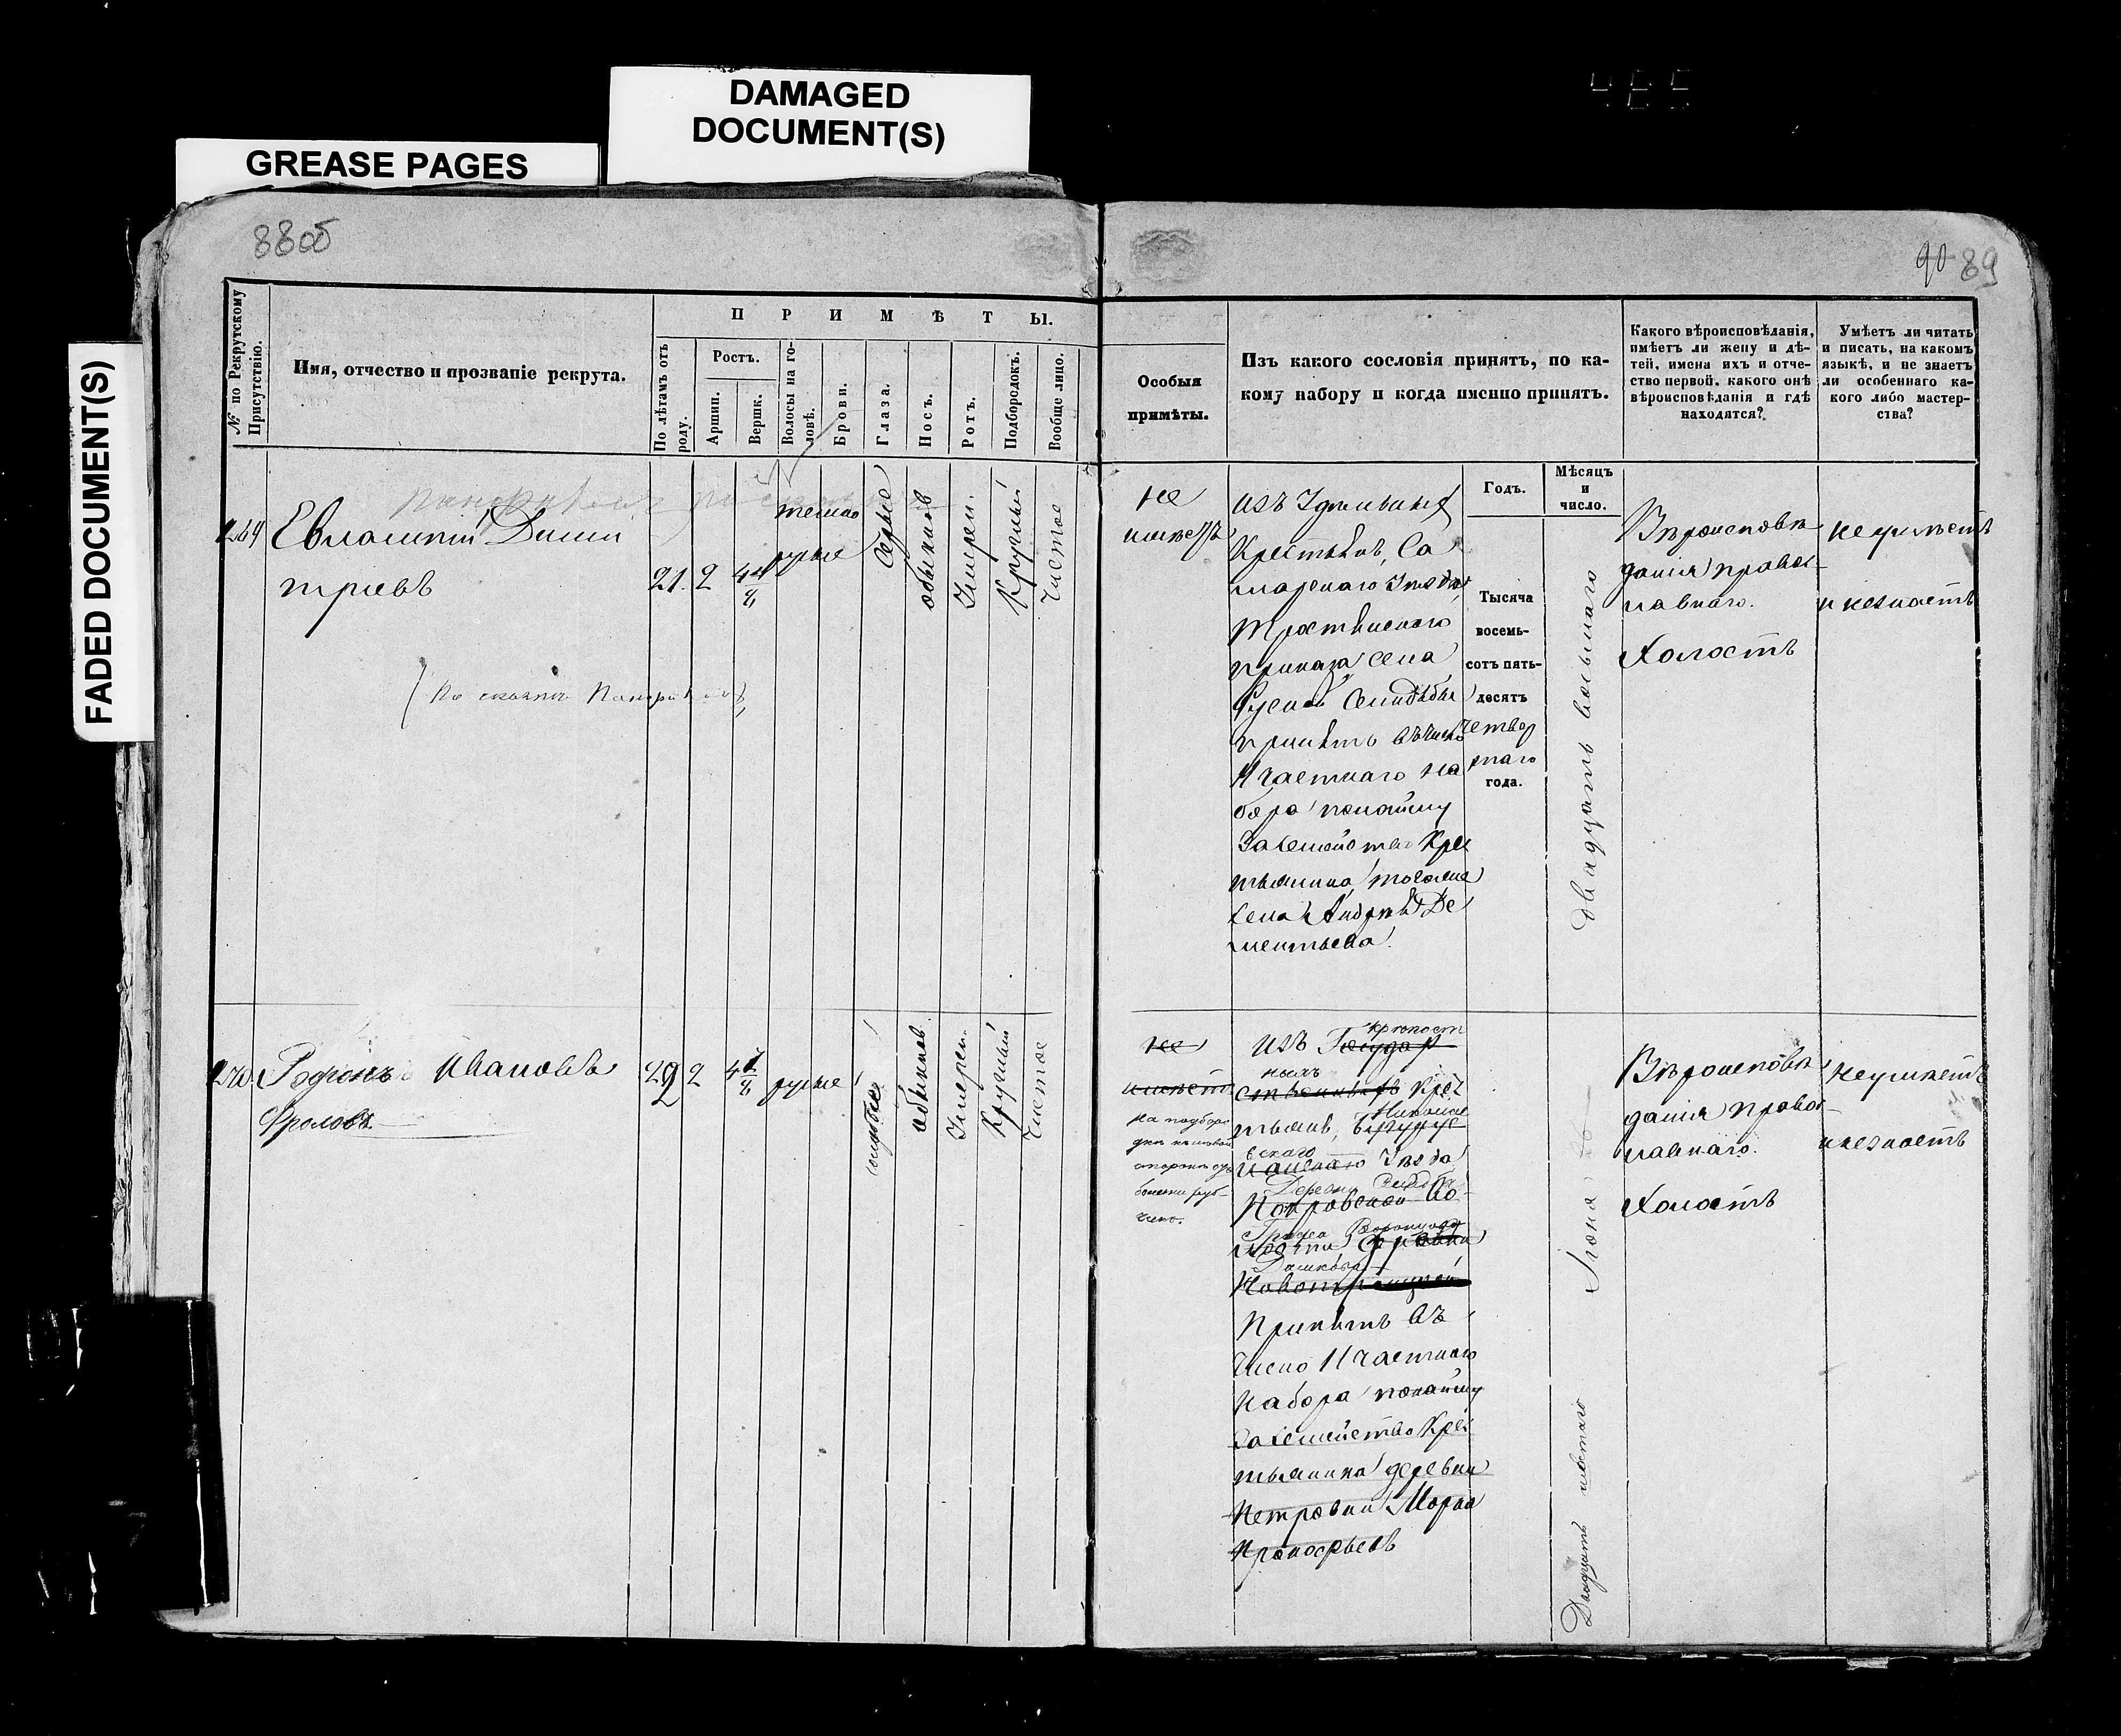 DAMAGED
DOCUMENT(S)
GREASE PAGES
FADED DOCUMENT(S)
88об
90 89
№ по Рекрутскому
Присутствію.
Имя, отчество и прозваніе рекрута.
ПРИМѢТЫ.
По лѣтамъ отъ
роду.
Ростъ.
Аршин.
Вершк.
Волосы на го-
ловѣ.
Брови.
Глаза.
Носъ.
Ротъ.
Подбородокъ.
Вообще лицо.
Особыя
примѣты.
Изъ какого сословія принятъ, по ка-
кому набору и когда именно принятъ.
Какого вѣроисповѣданія,
имѣетъ ли жену и дѣ-
тей, имена ихъ и отче-
ство первой, какого онѣ
вѣроисповѣданія и гдѣ
находятся?
Умѣетъ ли читать
и писать, на какомъ
языкѣ, и не знаетъ
ли особеннаго ка-
кого либо мастер-
ства?
Годъ.
Мѣсяцъ
и
число.
269
Евлампій Дими
тріевъ
21. 2 4 4/8
темно
русые
Серые
обыкнов
Умерен.
Круглый
Чистое
не
имѣетъ
изъ Удельныхъ
Крестьянъ, Са
марскаго Уезда,
Тростянскаго
приказа села
принятъ въ число
11 частнаго на
бора по найму
За семейство Крес
тьянина того же
села Андрея Де
ментьева.
Тысяча
восемь-
сотъ пять-
десятъ
четвер
таго
года.
двадцать восьмаго
Вѣроисповѣ
данія правос-
лавнаго.
Холостъ
не умѣетъ
и незнаетъ
270. Родіонъ Ивановъ
Фроловъ
29 2 4 1/8
русые
голубые
обыкнов
Умерен.
Круглый
Чистое
не
имѣетъ
на подборо
дкѣ съ левой
стороны
изъ Государ
крѣпост
нымъ
ственныхъ Крес
тьянъ, Бугурус
Николае
вскаго
ланскаго Уезда
Покровской Во-
Графа Воронцова
лости
Дашкова
Принятъ въ
Число 11 частнаго
Набора по найму
За семейство Крес
тьянина деревни
Петровки Марка
Прокофьева
Іюня
Двадцать шестаго
Вѣроисповѣ
данія Правос-
лавнаго.
Холостъ
Неумѣетъ
и незнаетъ